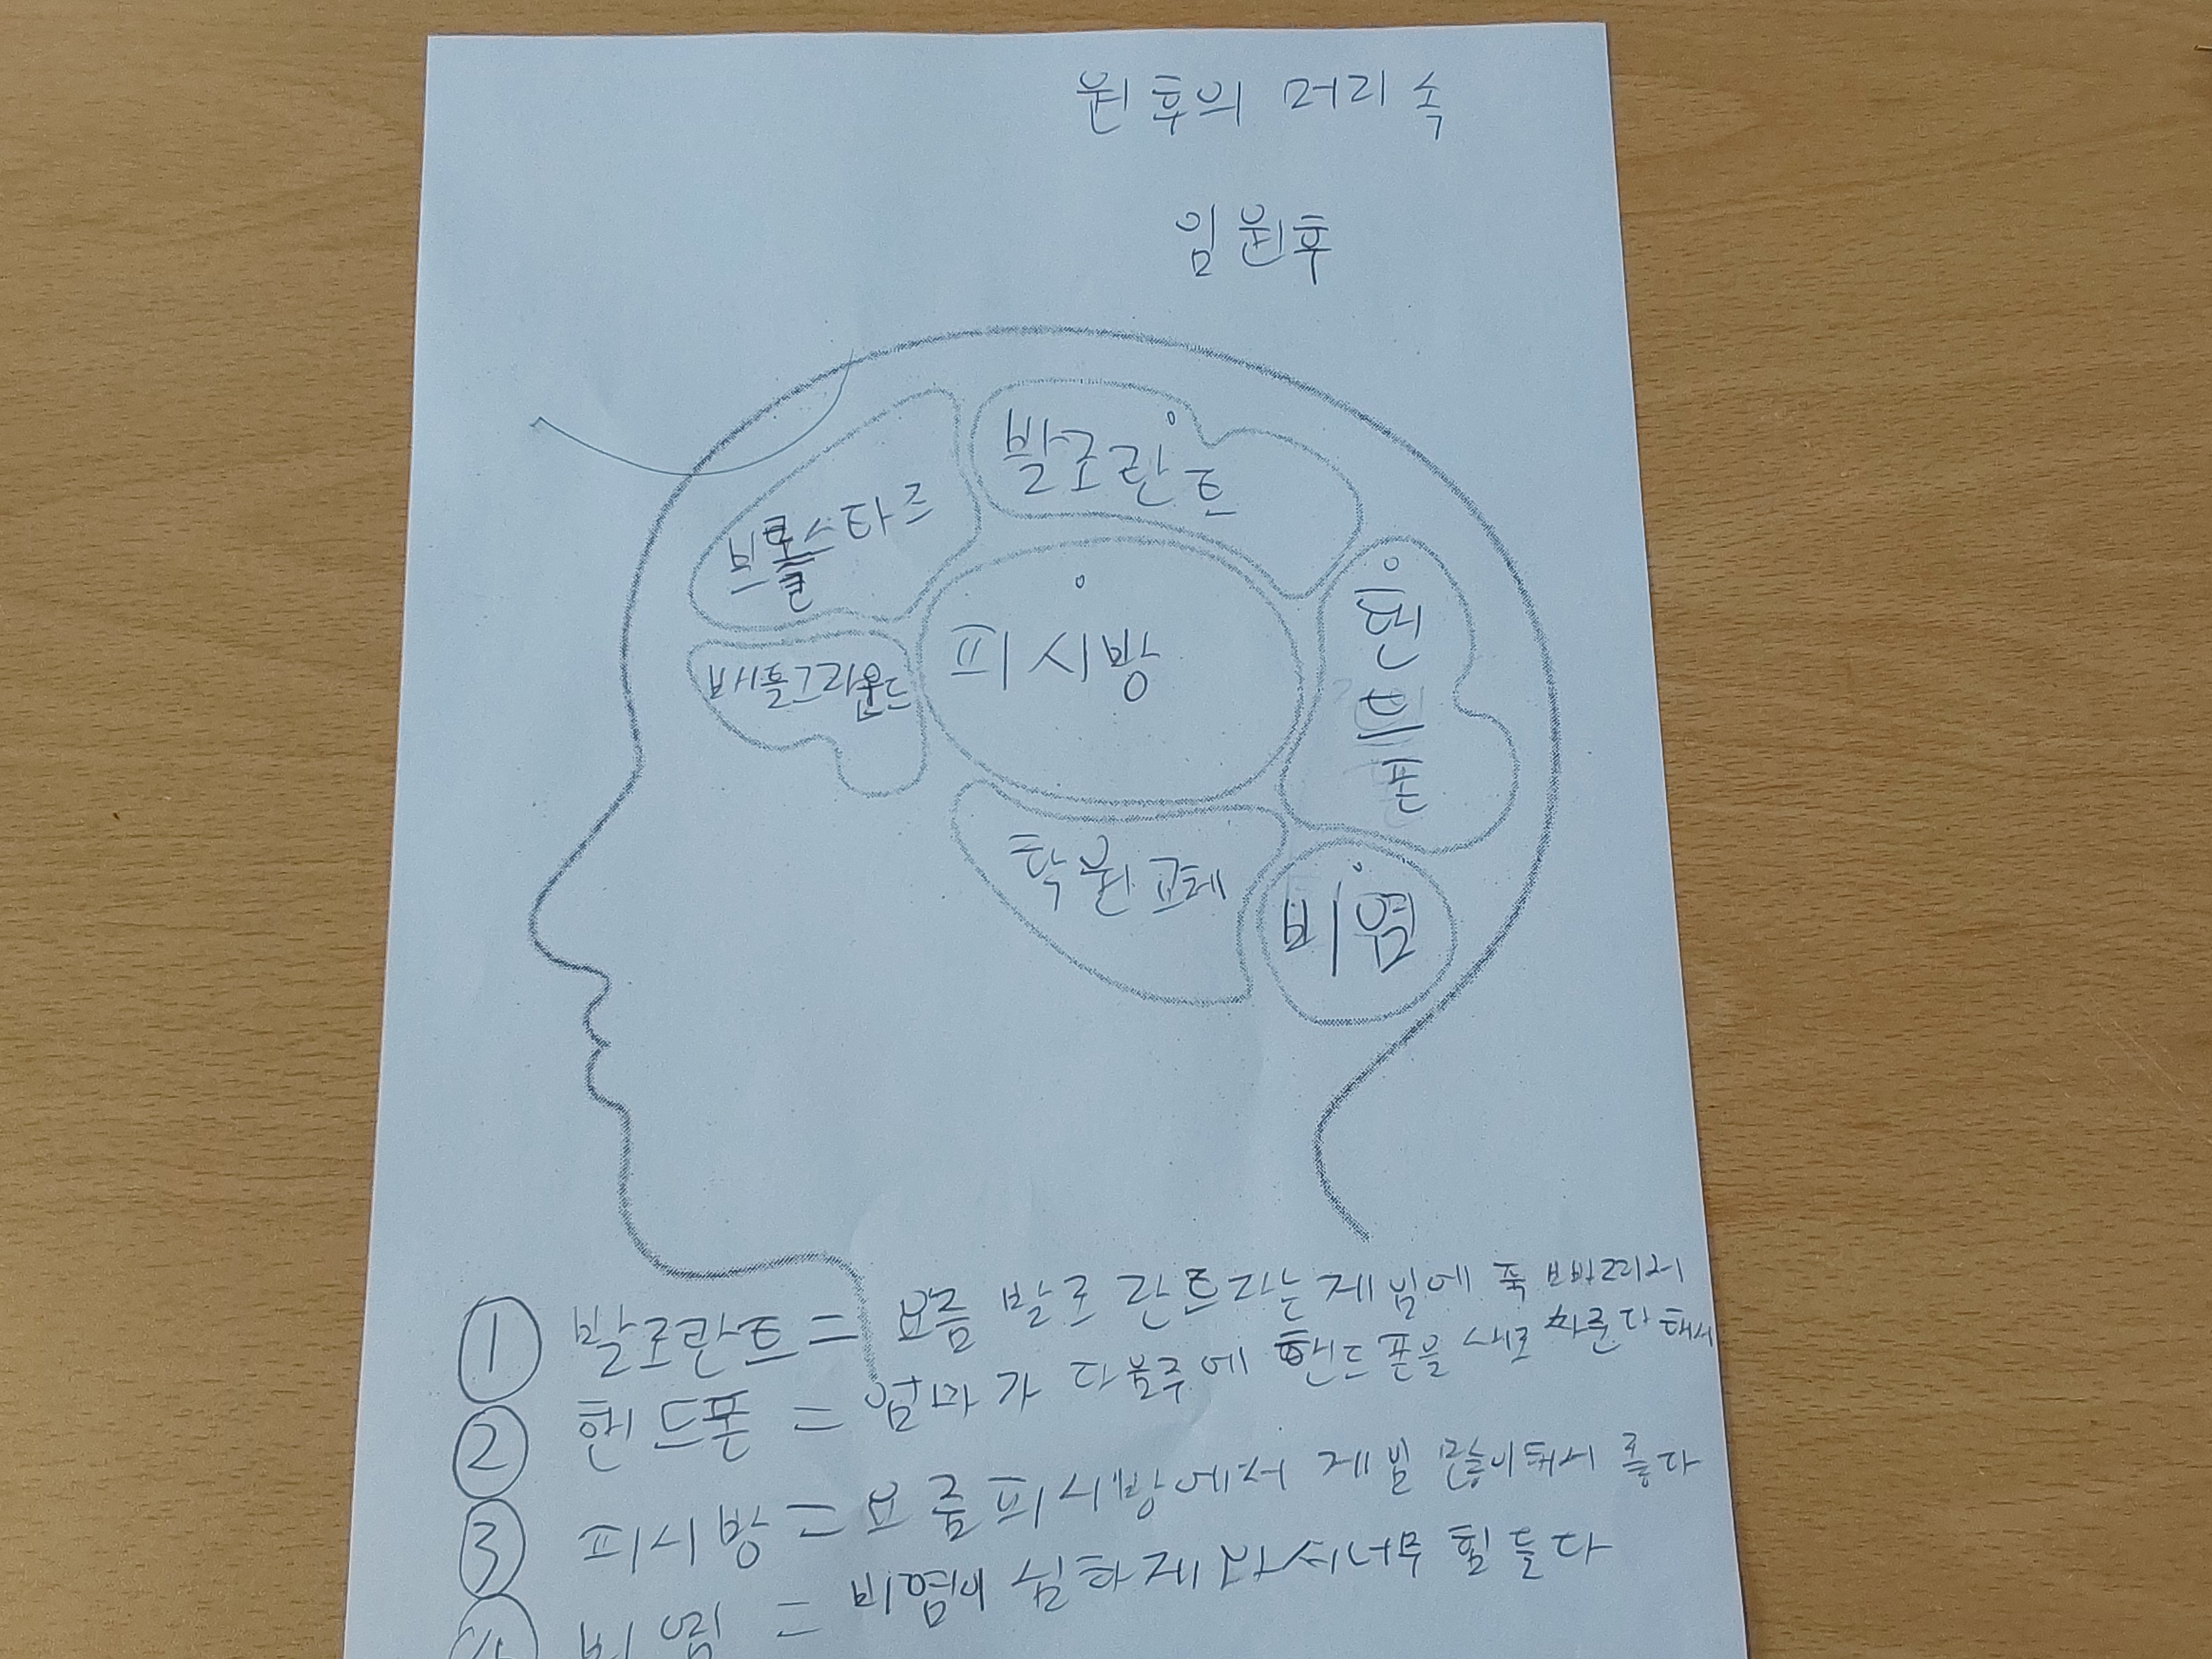 원후의 머리 속
임원후
발로란트
브롤스타즈
핸드폰
피시방
배틀그라운드
학원 교체
비염
① 발로란트 = 요즘 발로란트라는 게임에 푹 빠져서
② 핸드폰 = 엄마가 다음주에 핸드폰을 새로 사준다 해서
③ 피시방 = 요즘 피시방에서 게임 많이해서 좋다
④ 비염 = 비염이 심하게 와서 너무 힘들다